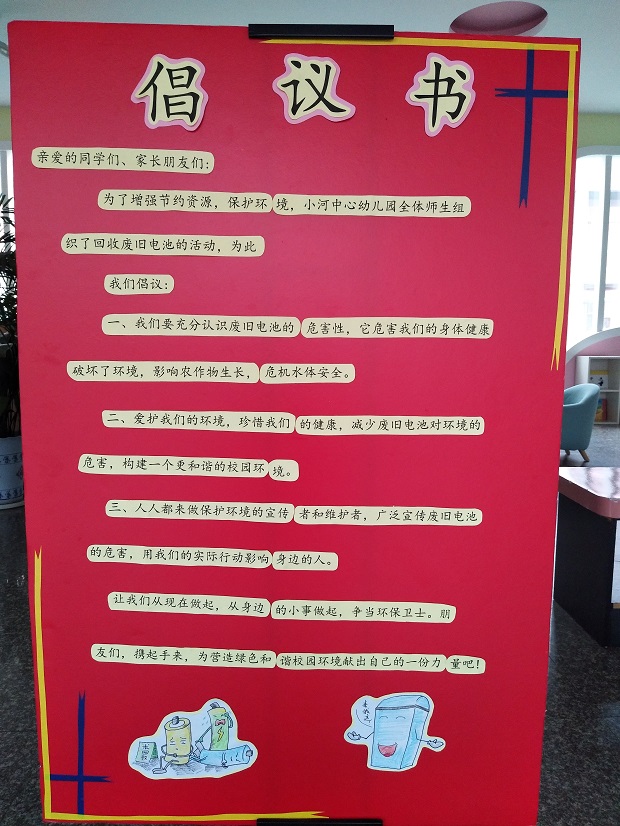 倡议书
亲爱的同学们、家长朋友们：
为了增强节约资源，保护环境，小河中心幼儿园全体师生组
织了回收废旧电池的活动，为此
我们倡议：
一、我们要充分认识废旧电池的危害性，它危害我们的身体健康
破坏了环境，影响农作物生长，危机水体安全。
二、爱护我们的环境，珍惜我们的健康，减少废旧电池对环境的
危害，构建一个更和谐的校园环境。
三、人人都来做保护环境的宣传者和维护者，广泛宣传废旧电池
的危害，用我们的实际行动影响身边的人。
让我们从现在做起，从身边的小事做起，争当环保卫士。朋
友们，携起手来，为营造绿色和谐校园环境献出自己的一份力量吧！